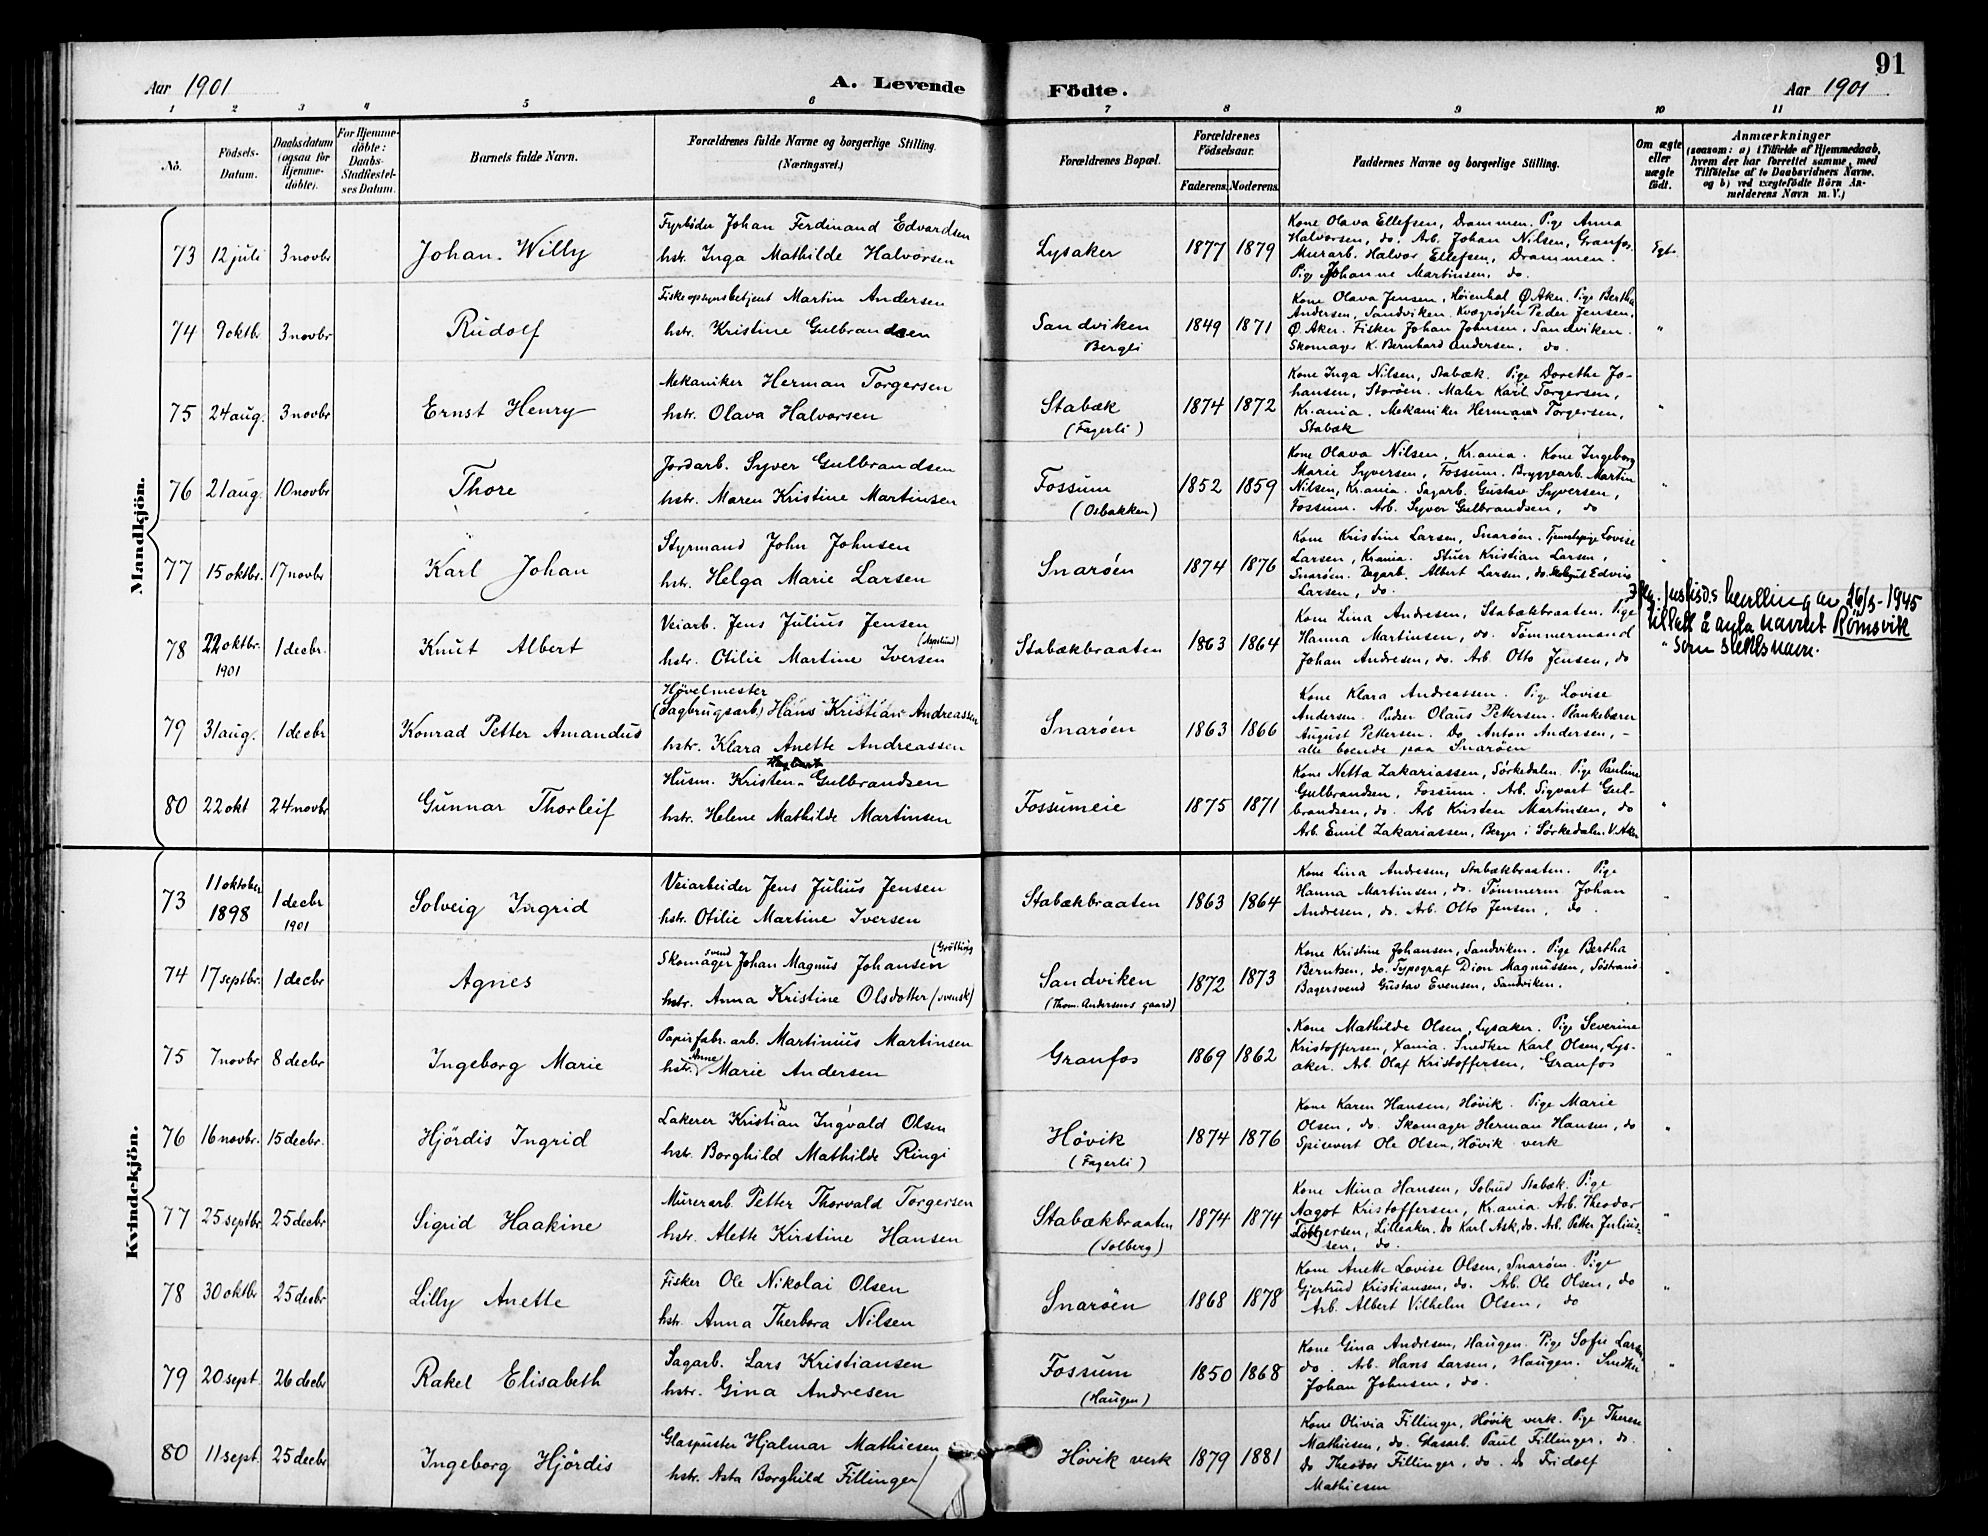 91
Aar 1901 A. Levende Födte. Aar 1901
1 2 3 4 5 6 7 8 9 10 11
No. Födsels-Datum. Daabsdatum (ogsaa for Hjemme-döbte). For Hjemme-döbte: Daabs-Stadfæstel-ses Datum. Barnets fulde Navn. Forældrenes fulde Navne og borgerlige Stilling. (Næringsvei.) Forældrenes Bopæl. Forældrenes Födselsaar. Faderens. Moderens. Faddernes Navne og borgerlige Stilling. Om ægte eller uægte födt. Anmærkninger
(saasom: a) i Tilfælde af Hjemmedaab, hvem der har forrettet samme, med Tilföielse af to Daabsvidners Navne, og b) ved uægtefödte Börn Anmelderens Navn m. V.)
Mandkjön.
73 12 juli 3 novbr Johan Willy
Fyrböder Johan Ferdinand Edvardsen
hstr. Inga Mathilde Halvorsen
Lysaker 1877 1879
Kone Olava Ellefsen, Drammen. Pige Anna
Halvorsen, do. Arb. Johan Nilsen, Granfos.
Murarb. Halvor Ellefsen, Drammen.
Pige Johanne Martinsen, do.
Egt.
74 9 oktbr 3 novbr Rudolf
Fiskeopsynsbetjent Martin Andersen
hstr. Kristine Gulbrandsen
Sandviken 1849 1871
Bergli
Kone Olava Jensen, Høienhal Ø. Aker. Pige Bertha
Andersen, Sandviken. Kvægrögter Peder Jensen,
Ø. Aker. Fisker Johan Johnsen, Sandviken.
Skomager K. Bernhard Andersen, do.
"
75 24 aug. 3 novbr Ernst Henry
Mekaniker Herman Torgersen
hstr. Olava Halvorsen
Stabæk 1874 1872
(Fagerli)
Kone Inga Nilsen, Stabæk. Pige Dorethe Jo-
hansen, Storöen. Maler Karl Torgersen,
Kr.ania. Mekaniker Herman Torgersen,
Stabæk
"
76 21 aug. 10 novbr Thore
Jordarb. Syver Gulbrandsen
hstr. Maren Kristine Martinsen
Fossum 1852 1859
(Osbakken)
Kone Olava Nilsen, Kr.ania. Kone Ingeborg
Marie Syversen, Fossum. Bryggearb. Martin
Nilsen, Kr.ania. Sagarb. Gustav Syversen,
Fossum. Arb. Syver Gulbrandsen, do
"
77 15 oktbr. 17 novbr Karl Johan
Styrmand John Johnsen
hstr. Helga Marie Larsen
Snaröen 1874 1876
Kone Kristine Larsen, Snaröen. Tjenestepige Lovise
Larsen, Kr.ania. Stuer Kristian Larsen,
Snaröen. Dagarb. Albert Larsen, do. Edvin
Larsen, do.
"
78 22 oktbr. 1901 1 decbr. Knut Albert
Veiarb. Jens Julius Jensen
hstr. Otilie Martine Iversen
Stabækbraaten 1863 1864
Kone Lina Andresen, Stabækbraaten. Pige
Hanna Martinsen, do. Tömmermand
Johan Andresen, do. Arb. Otto Jensen, do
"
Ifølg. justisds bevilling av 26/5-1945
tillatt å anta navnet Rømsvik
som slektsnavn.
79 31 aug. 1 decbr Konrad Petter Amandus
Hövelmester
(Sagbrugsarb.) Hans Kristian Andreassen
hstr. Klara Anette Andreassen
Snaröen 1863 1866
Kone Klara Andreassen. Pige Lovise
Andersen. Olaus Pettersen. Plankebærer
August Pettersen. Do Anton Andersen, -
alle boende paa Snaröen
80 22 okt 24 novbr Gunnar Thorleif
Husm. Kristen Gulbrandsen
hstr. Helene Mathilde Martinsen
Fossumeie 1875 1871
Kone Netta Zakariassen, Sörkedalen. Pige Pauline
Gulbrandsen, Fossum. Arb. Sigvart Gul-
brandsen, do. Arb Kristen Martinsen, do
Arb. Emil Zakariassen, Berger i Sörkedalen. V. Aker
"
Kvindekjön.
73 11 oktober 1898 1 decbr 1901 Solveig Ingrid
Veiarbeider Jens Julius Jensen
hstr. Otilie Martine Iversen
Stabækbraaten 1863 1864
Kone Lina Andresen, Stabækbraaten. Pige
Hanna Martinsen, do. Tömmerm Johan
Andresen, do. Arb. Otto Jensen, do.
"
74 17 septbr. 1 decbr Agnes
Skomagersvend Johan Magnus Johansen (Grötting)
hstr. Anna Kristine Olsdotter (svensk)
Sandviken 1872 1873
(Thom. Andersens gaard)
Kone Kristine Johansen, Sandviken. Pige Bertha
Berntsen, do. Typograf Dion Magnussen,
Bagersvend Gustav Evensen, Sandviken.
"
75 7 novbr 8 decbr Ingeborg Marie
Papirfabr. arb. Martinius Martinsen
hstr. Anne Marie Andersen
Granfos 1869 1862
Kone Mathilde Olsen, Lysaker. Pige Severine
Kristoffersen, Xania. Snedker Karl Olsen, Lys-
aker. Arb. Olaf Kristoffersen, Granfos
"
76 16 novbr. 15 decbr. Hjördis Ingrid
Lakerer Kristian Ingvald Olsen
hstr. Borghild Mathilde Ringi
Hövik 1874 1876
(Fagerli)
Kone Karen Hansen, Hövik. Pige Marie
Olsen, do. Skomager Herman Hansen, do
Ole Olsen, Hövik verk
"
77 25 septbr. 25 decbr Sigrid Haakine
Murerarb. Petter Thorvald Torgersen
hstr. Alette Kirstine Hansen
Stabækbraaten 1874 1874
(Solberg)
Kone Mina Hansen, Solbud Stabæk. Pige
Aagot Kristoffersen, Kr.ania. Arb. Theodor
Torgersen, Lilleaker. Do Karl Ask, do. Arb. Petter Julius-
sen, do.
"
78 30 oktbr 25 decbr Lilly Anette
Fisker Ole Nikolai Olsen
hstr. Anna Therbora Nilsen
Snaröen 1868 1878
Kone Anette Lovise Olsen, Snaröen. Pige
Gjertrud Kristiansen, do. Arb. Ole Olsen, do
Arb. Albert Vilhelm Olsen, do
"
79 20 sept. 26 decbr Rakel Elisabeth
Sagarb. Lars Kristiansen
hstr. Gina Andresen
Fossum 1850 1868
(Haugen)
Kone Gina Andresen, Haugen. Pige Sofie Larsen
do. Arb. Hans Larsen, Haugen. Snedker
Johan Johnsen, do.
"
80 11 sept. 25 decbr Ingeborg Hjördis
Glaspuster Hjalmar Mathiesen
hstr. Asta Borghild Fillinger
Hövik verk 1879 1881
Kone Olivia Fillinger, Hövik verk. Pige Therese
Mathiesen, do. Glasarb. Paul Fillinger, do.
Do Theodor Fillinger, do. Do Fridolf
Mathiesen
"